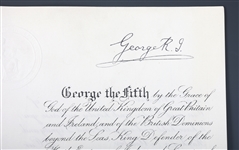 George R. I.
George the Fifth by the Grace of
God of the United Kingdom of Great Britain
and Ireland and of the British Dominions
beyond the Seas, King, Defender of the